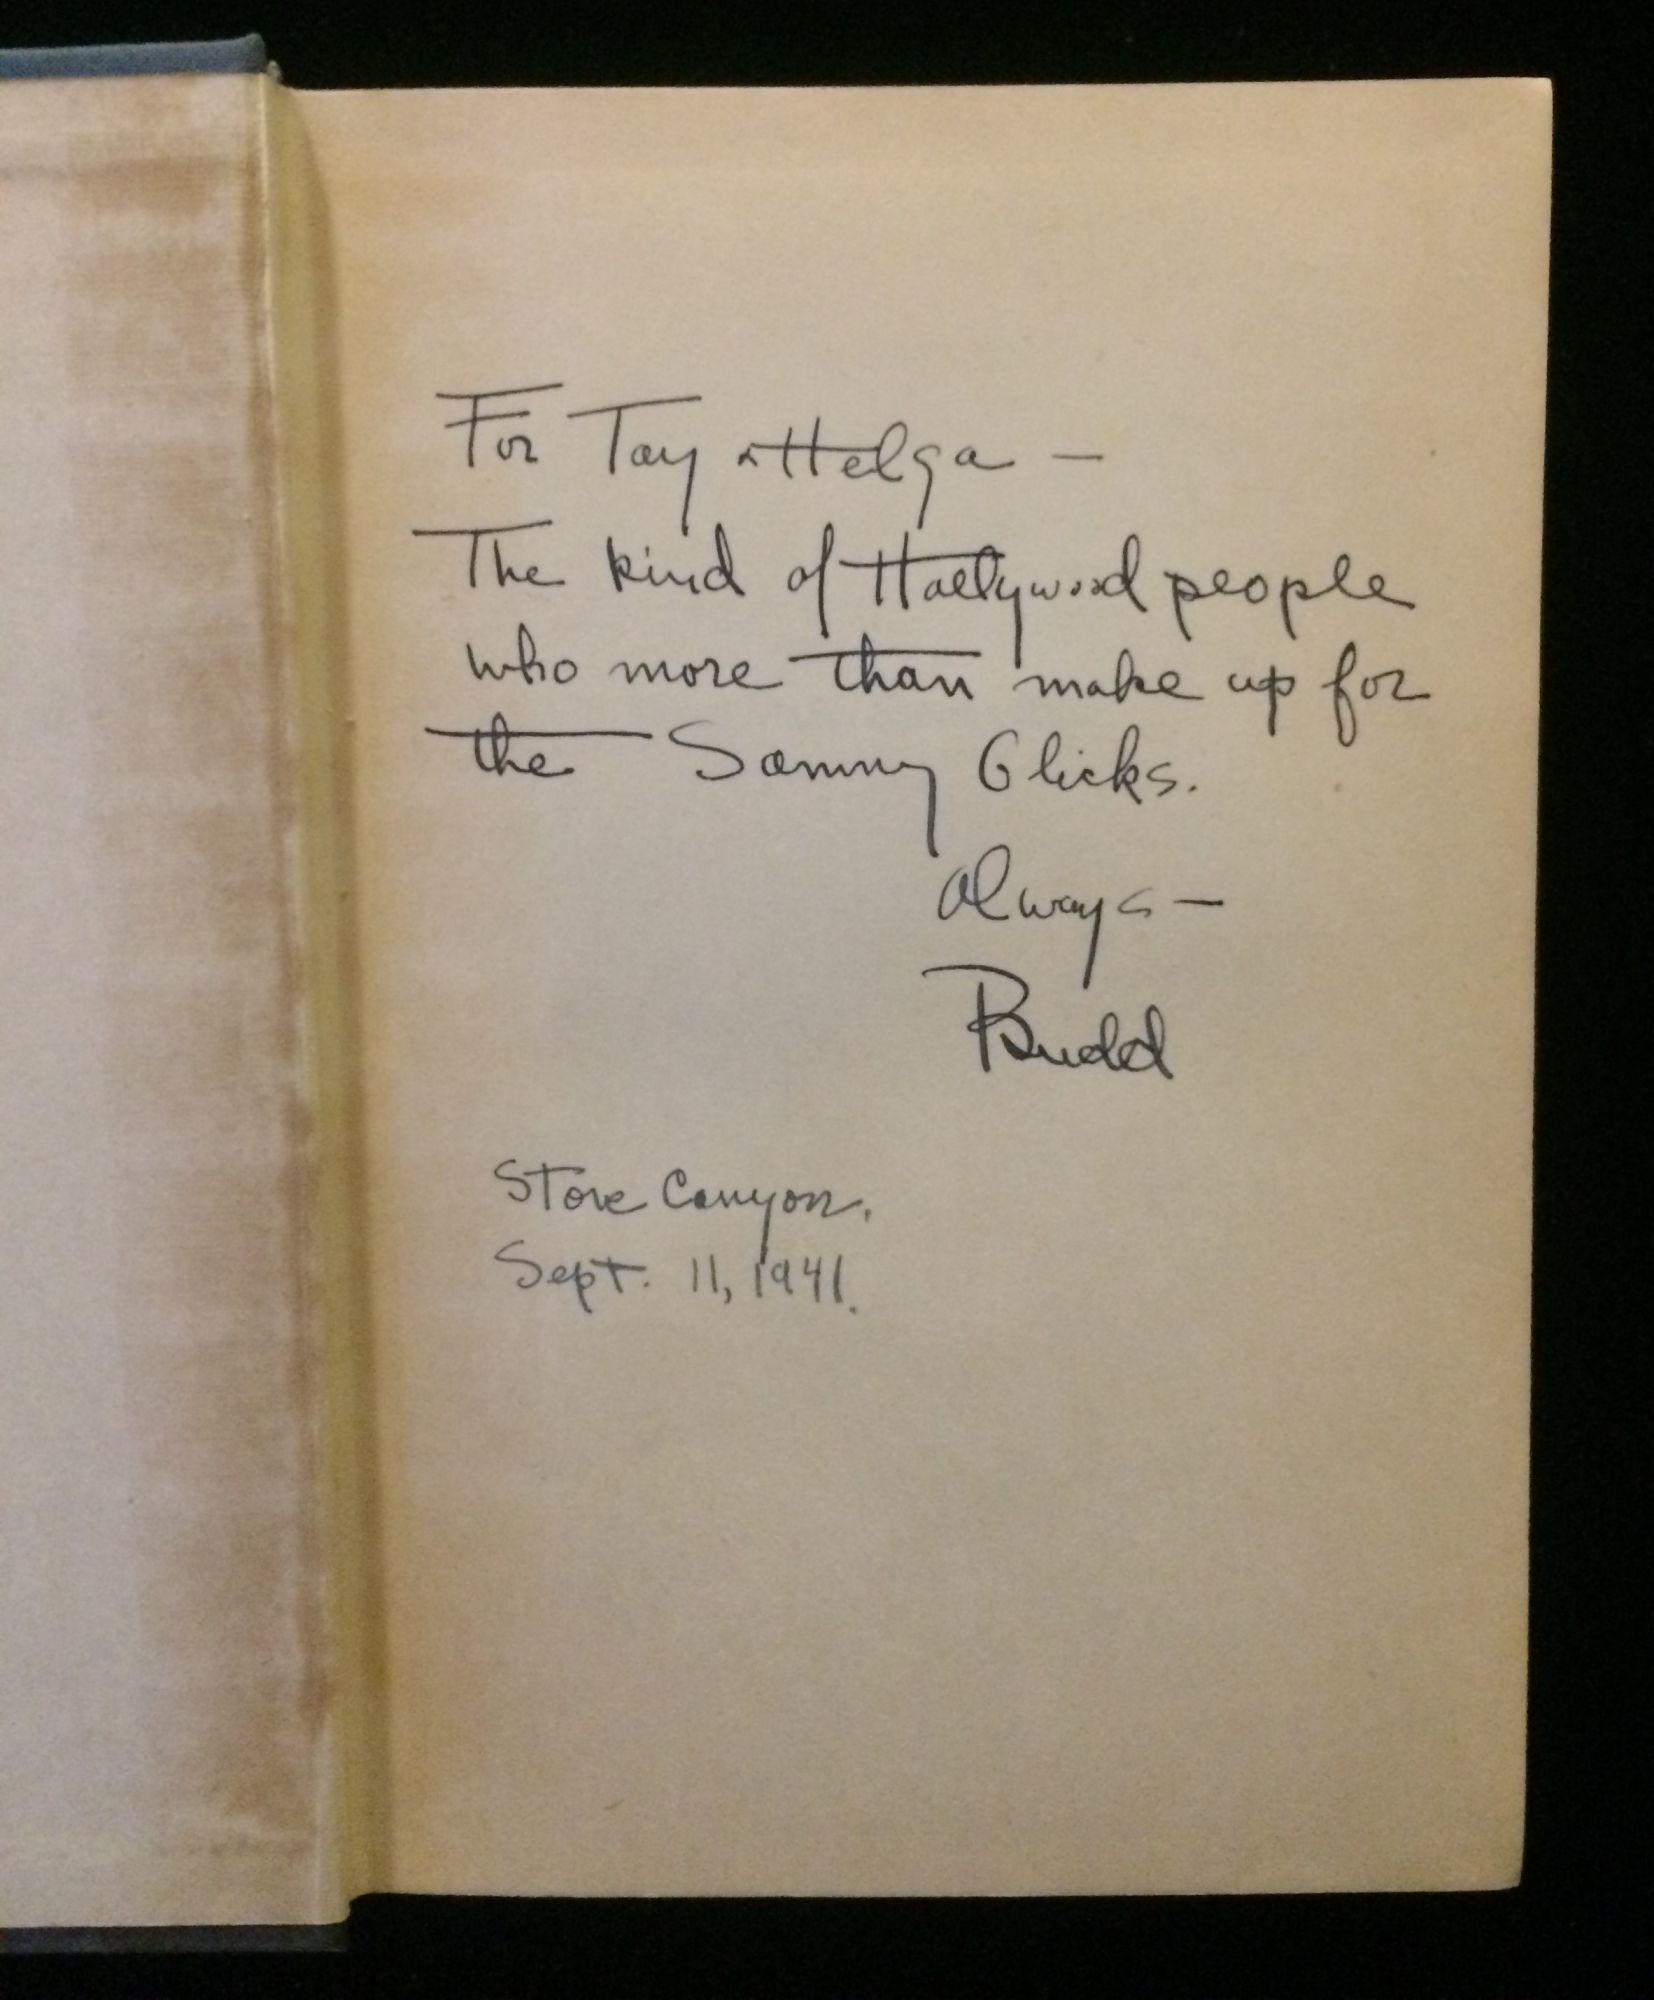 For Tay & Helga —
The kind of Hollywood people
who more than make up for
the Sammy Glicks.
Always —
Budd
Stone Canyon.
Sept. 11, 1941.